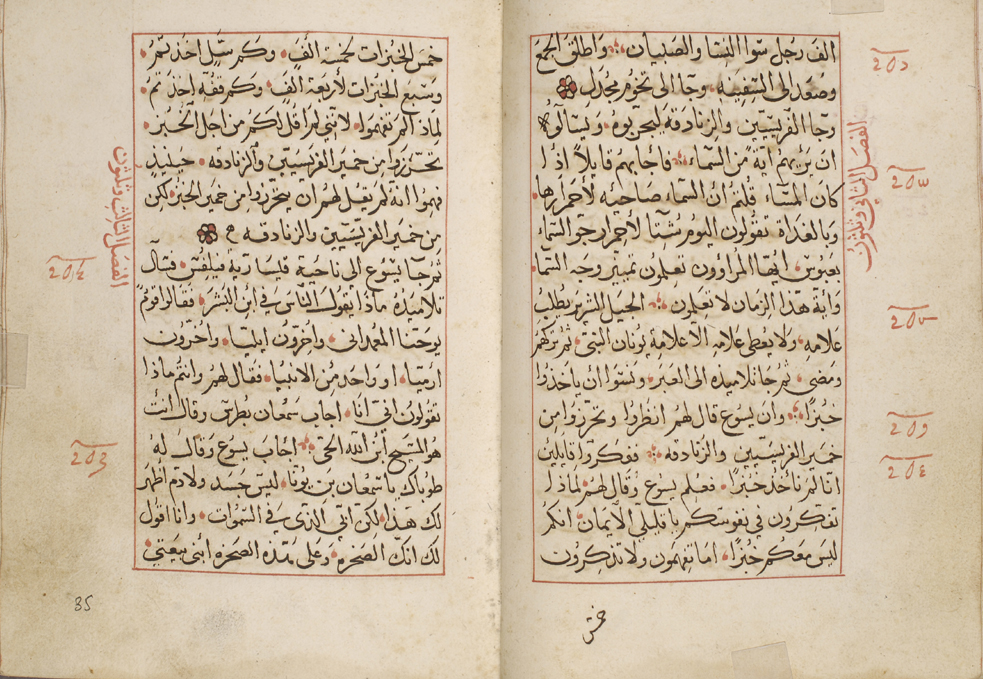 الف رجل سوا النسا والصبيان واطلق الجمع
وصعد الى السفينه وجا الى تخوم مجدل
وجا الفريسيين والزنادقه ليجربوه ويسالوه
ان يريهم اية من السماء فاجابهم قايلاً اذا
كان المساء قلتم ان السماء صاحيه لاحمرارها
وبالغداة تقولون اليوم شتا لاحمرار جو السماء
بعبوس ايها المراوون تعلمون تمييز وجه السما
واية هذا الزمان لا تعلمون الجيل الشرير يطلب
علامه ولا يعطى علامه الا علامة يونان النبي ثم تركهم
ومضى ثم جا تلاميذه الى العبر ونسوا ان ياخذوا
خبزاً وان يسوع قال لهم انظروا وتحرزوا من
خمير الفريسيين والزنادقه ففكروا قايلين
انا لم ناخذ خبزاً فعلم يسوع وقال لهم لماذا
تفكرون في نفوسكم يا قليلي الايمان انكم
ليس معكم خبزاً اما تفهمون ولا تذكرون
الفصل الثاني وثلثون
خمس الخبزات لخمسة الف وكم سل اخذتم
وسبع الخبزات لاربعة الف وكم قفه اخذتم
لماذا لم تفهموا لانني لم اقل لكم من اجل الخبز
تحترزوا من خمير الفريسيين والزنادقه حينيذ
فهموا انه لم يقل لهم ان يتحرزوا من خمير الخبز لكن
من خمير الفريسيين والزنادقه
ثم جا يسوع الى ناحية قيسارية فيلفس فسال
تلاميذه ماذا يقول الناس في ابن البشر فقالوا قوم
يوحنا المعمداني واخرون ايليا واخرون
ارميا او واحد من الانبيا فقال لهم وانتم ماذا
تقولون اني انا اجاب سمعان بطرس وقال انت
هو المسيح ابن الله الحي اجاب يسوع وقال له
طوباك يا سمعان بن يونا ليس جسد ولا دم اظهر
لك هذا لكن ابي الذي في السموات وانا اقول
لك انك الصخره وعلى هذه الصخره ابني بيعتي
الفصل الثالث وثلثون
35